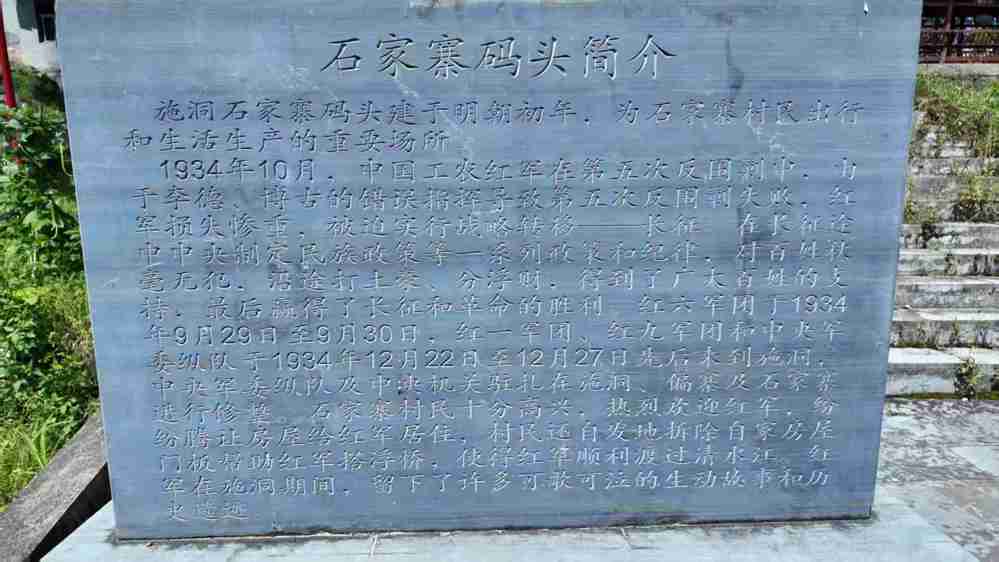 石家寨码头简介
施洞石家寨码头建于明朝初年，为石家寨村民出行
和生活生产的重要场所
1934年10月，中国工农红军在第五次反围剿中，由
于李德、博古的错误指挥导致第五次反围剿失败，红
军损失惨重，被迫实行战略转移——长征，在长征途
中中央制定民族政策等一系列政策和纪律，对百姓秋
毫无犯，沿途打土豪、分浮财，得到了广大百姓的支
持，最后赢得了长征和革命的胜利。红六军团于1934
年9月29日至9月30日，红一军团、红九军团和中央军
委纵队于1934年12月22日至12月27日先后来到施洞，
中央军委纵队及中央机关驻扎在施洞、偏寨及石家寨
进行修整，石家寨村民十分高兴，热烈欢迎红军，纷
纷腾让房屋给红军居住，村民还自发地拆除自家房屋
门板帮助红军搭浮桥，使得红军顺利渡过清水江。红
军在施洞期间，留下了许多可歌可泣的生动故事和历
史遗迹